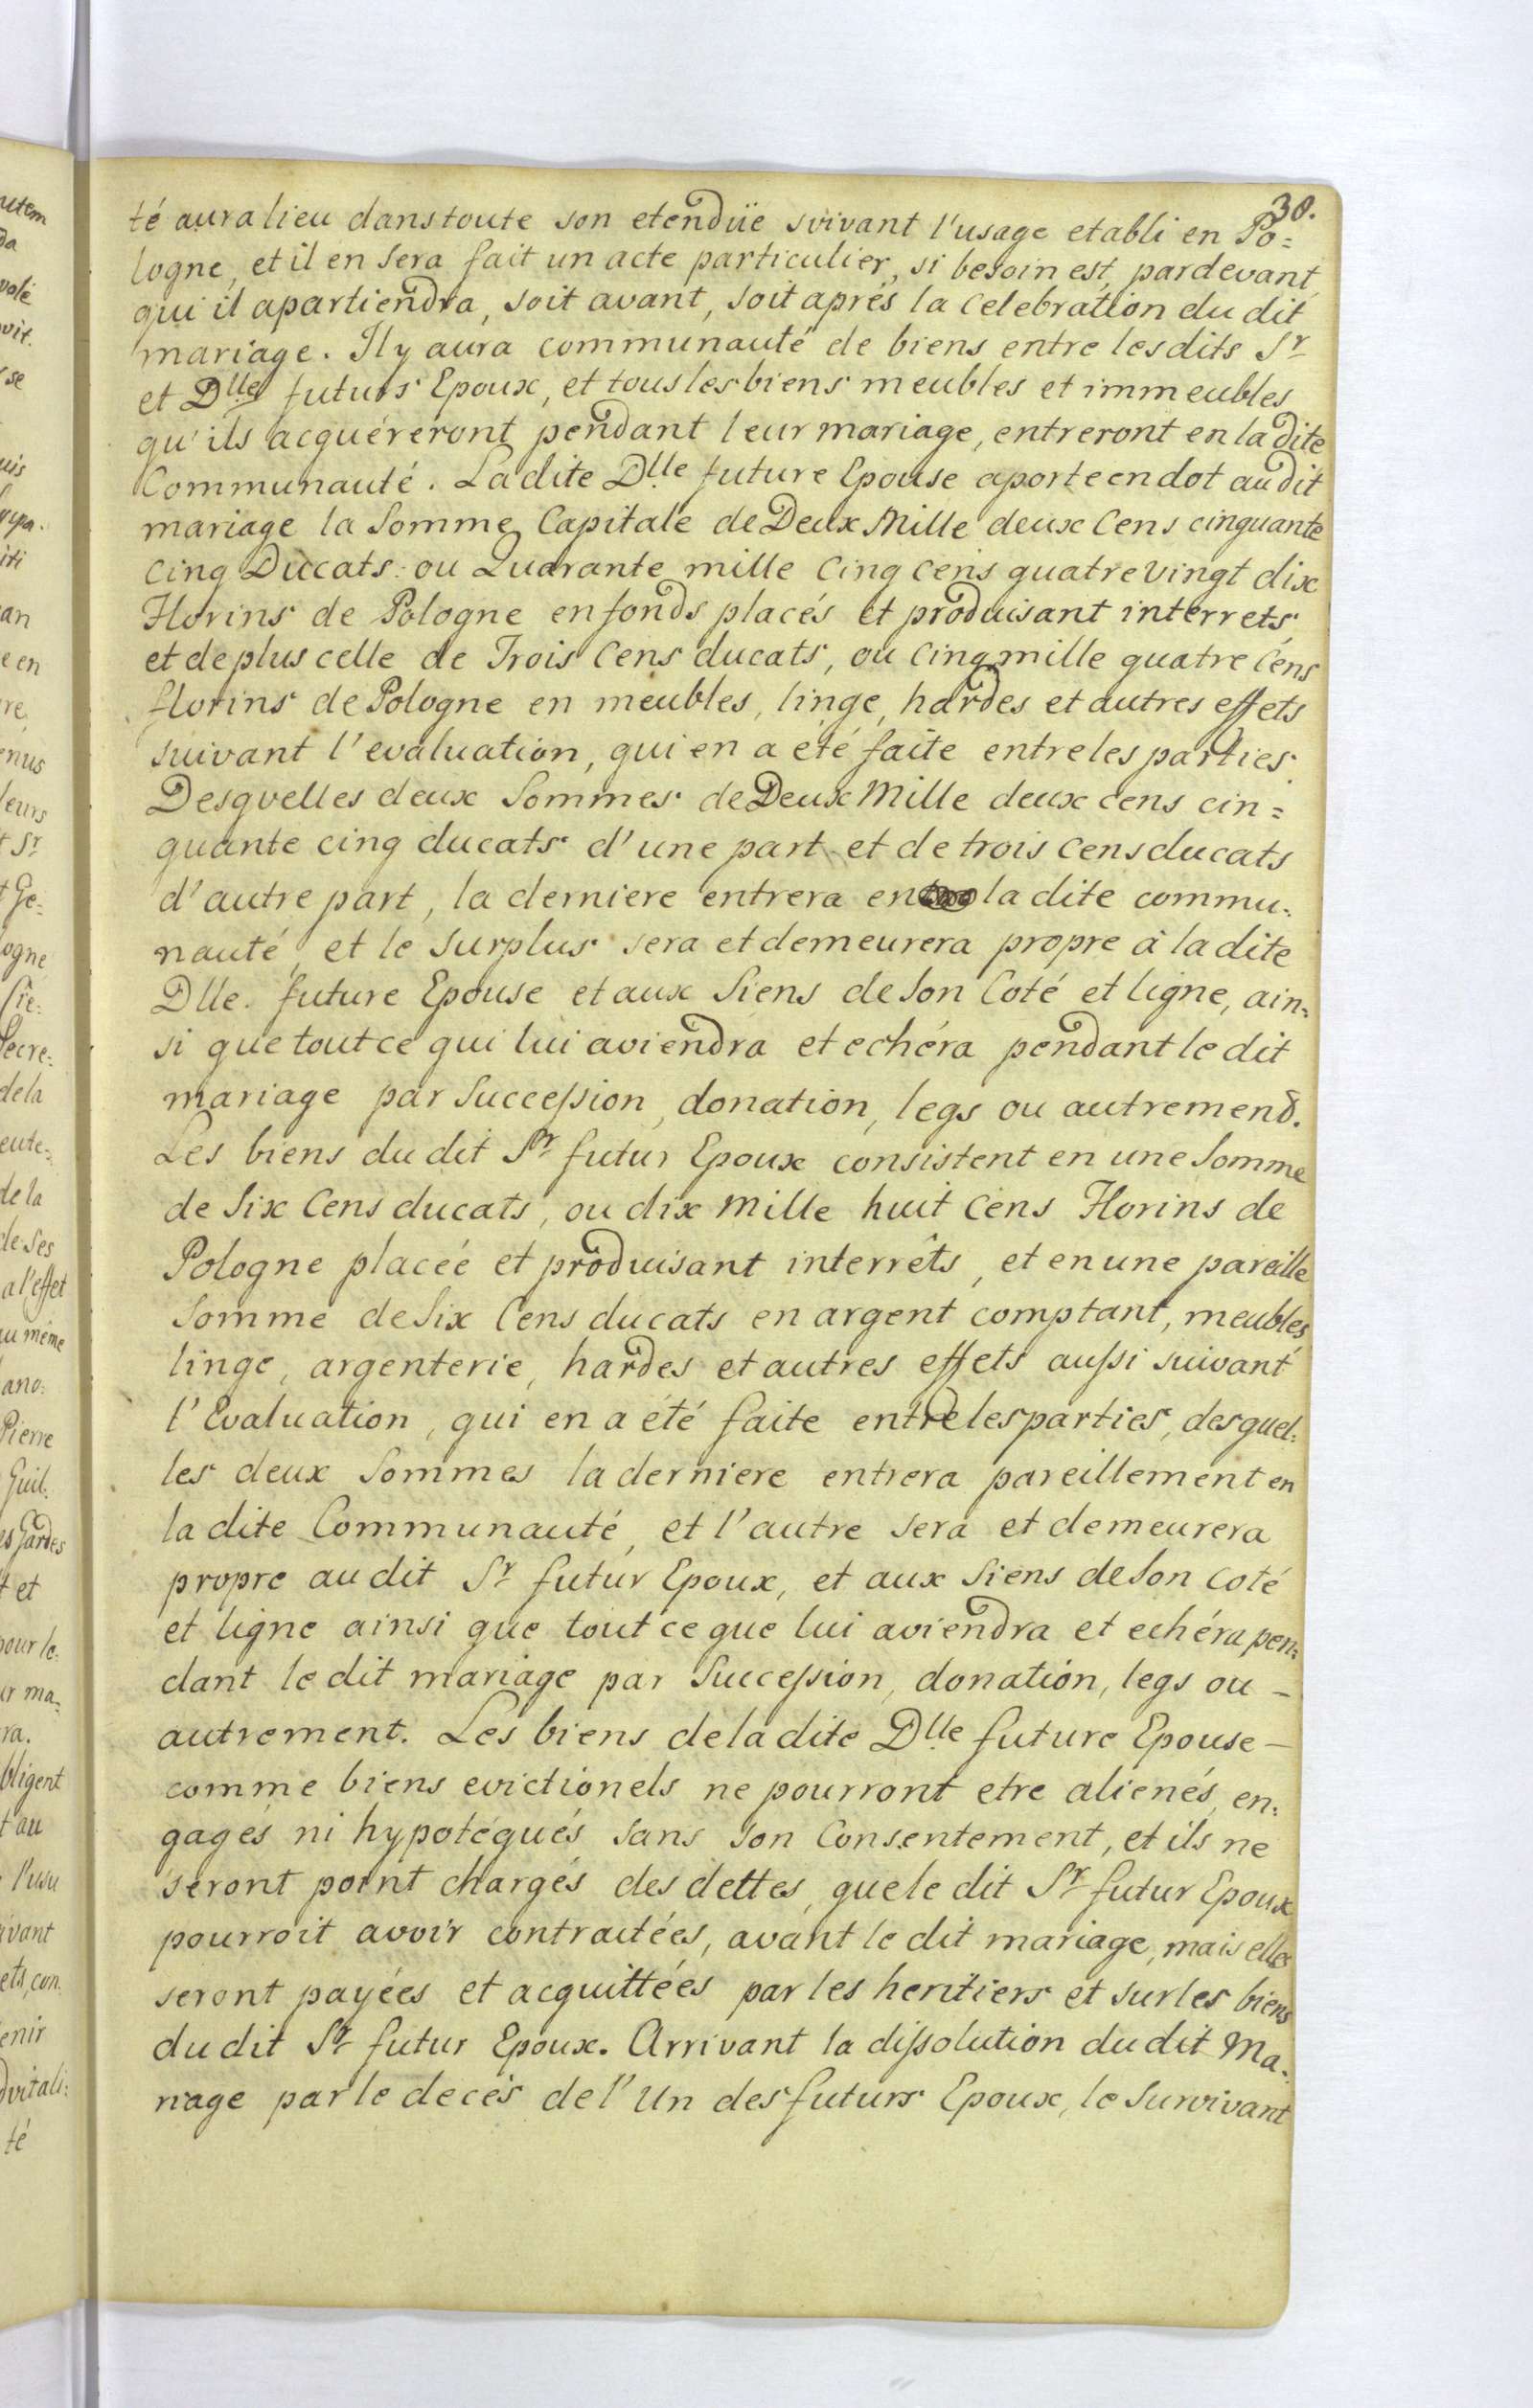 30.
té aura lieu dans toute son etendüe suivant l'usage etabli en Po=
logne, et il en sera fait un acte particulier, si besoin est, pardevant
qui il apartiendra, soit avant, soit aprés la celebration du dit
mariage. Il y aura communauté de biens entre lesdits Sr
et Dlle futurs Epoux, et tous les biens meubles et immeubles
qu'ils acquéreront pendant leur mariage, entreront en la dite
Communauté. La dite Dlle future Epouse aporte en dot au dit
mariage la Somme Capitale de Deux Mille deux Cens cinquante
cinq Ducats ou Quarante mille Cinq cens quatre vingt dix
Florins de Pologne en fonds placés et produisant interrets,
et de plus celle de Trois Cens ducats, ou Cinq mille quatre Cens
florins de Pologne en meubles, linge, hardes et autres effets
suivant l'evaluation, qui en a eté faite entre les parties.
Desquelles deux Sommes de Deux Mille deux cens cin=
quante cinq ducats d'une part et de trois Cens ducats
d'autre part, la derniere entrera en la dite commu=
nauté, et le surplus sera et demeurera propre à la dite
Dlle. future Epouse et aux Siens de Son Coté et ligne, ain=
si que tout ce qui lui aviendra et echéra pendant le dit
mariage par Succession, donation, legs ou autrement.
Les biens du dit Sr futur Epoux consistent en une Somme
de Six Cens ducats, ou dix mille huit cens Florins de
Pologne placéé et produisant interrêts, et en une pareille
Somme de Six Cens ducats en argent comptant, meubles
linge, argenterie, hardes et autres effets aussi suivant
l'Evaluation, qui en a été faite entre les parties, desquel=
les deux Sommes la derniere entrera pareillement en
la dite Communauté, et l'autre sera et demeurera
propre au dit Sr futur Epoux, et aux Siens de Son coté
et ligne ainsi que tout ce que lui aviendra et echéra pen=
dant le dit mariage par Succession, donation, legs ou -
autrement. Les biens de la dite Dlle future Epouse -
comme biens evictionels ne pourront etre alienés, en=
gagés ni hypotéqués sans son Consentement, et ils ne
seront point chargés des dettes, que le dit Sr futur Epoux
pourroit avoir contractées, avant le dit mariage, mais elles
seront payées et acquittées par les heritiers et sur les biens
du dit Sr futur Epoux. Arrivant la dissolution du dit Ma=
riage par le decés de l'Un des futurs Epoux, le Survivant